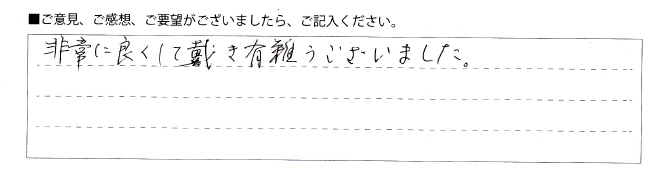 ■ご意見、ご感想、ご要望がございましたら、ご記入ください。
非常に良くして戴き有難うございました。